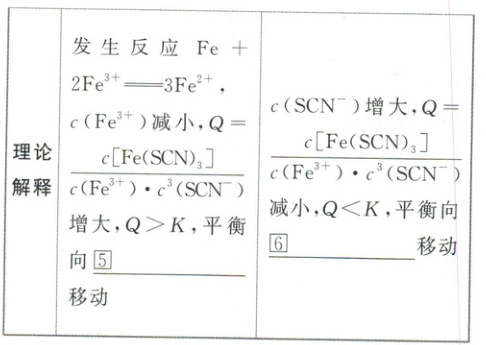 理论
解释
发生反应 Fe +
2Fe³⁺══3Fe²⁺,
c(Fe³⁺)减小,Q=
c[Fe(SCN)₃]
c(Fe³⁺)·c³(SCN⁻)
增大,Q>K,平衡
向 5
移动
c(SCN⁻)增大,Q=
c[Fe(SCN)₃]
c(Fe³⁺)·c³(SCN⁻)
减小,Q<K,平衡向
6 移动